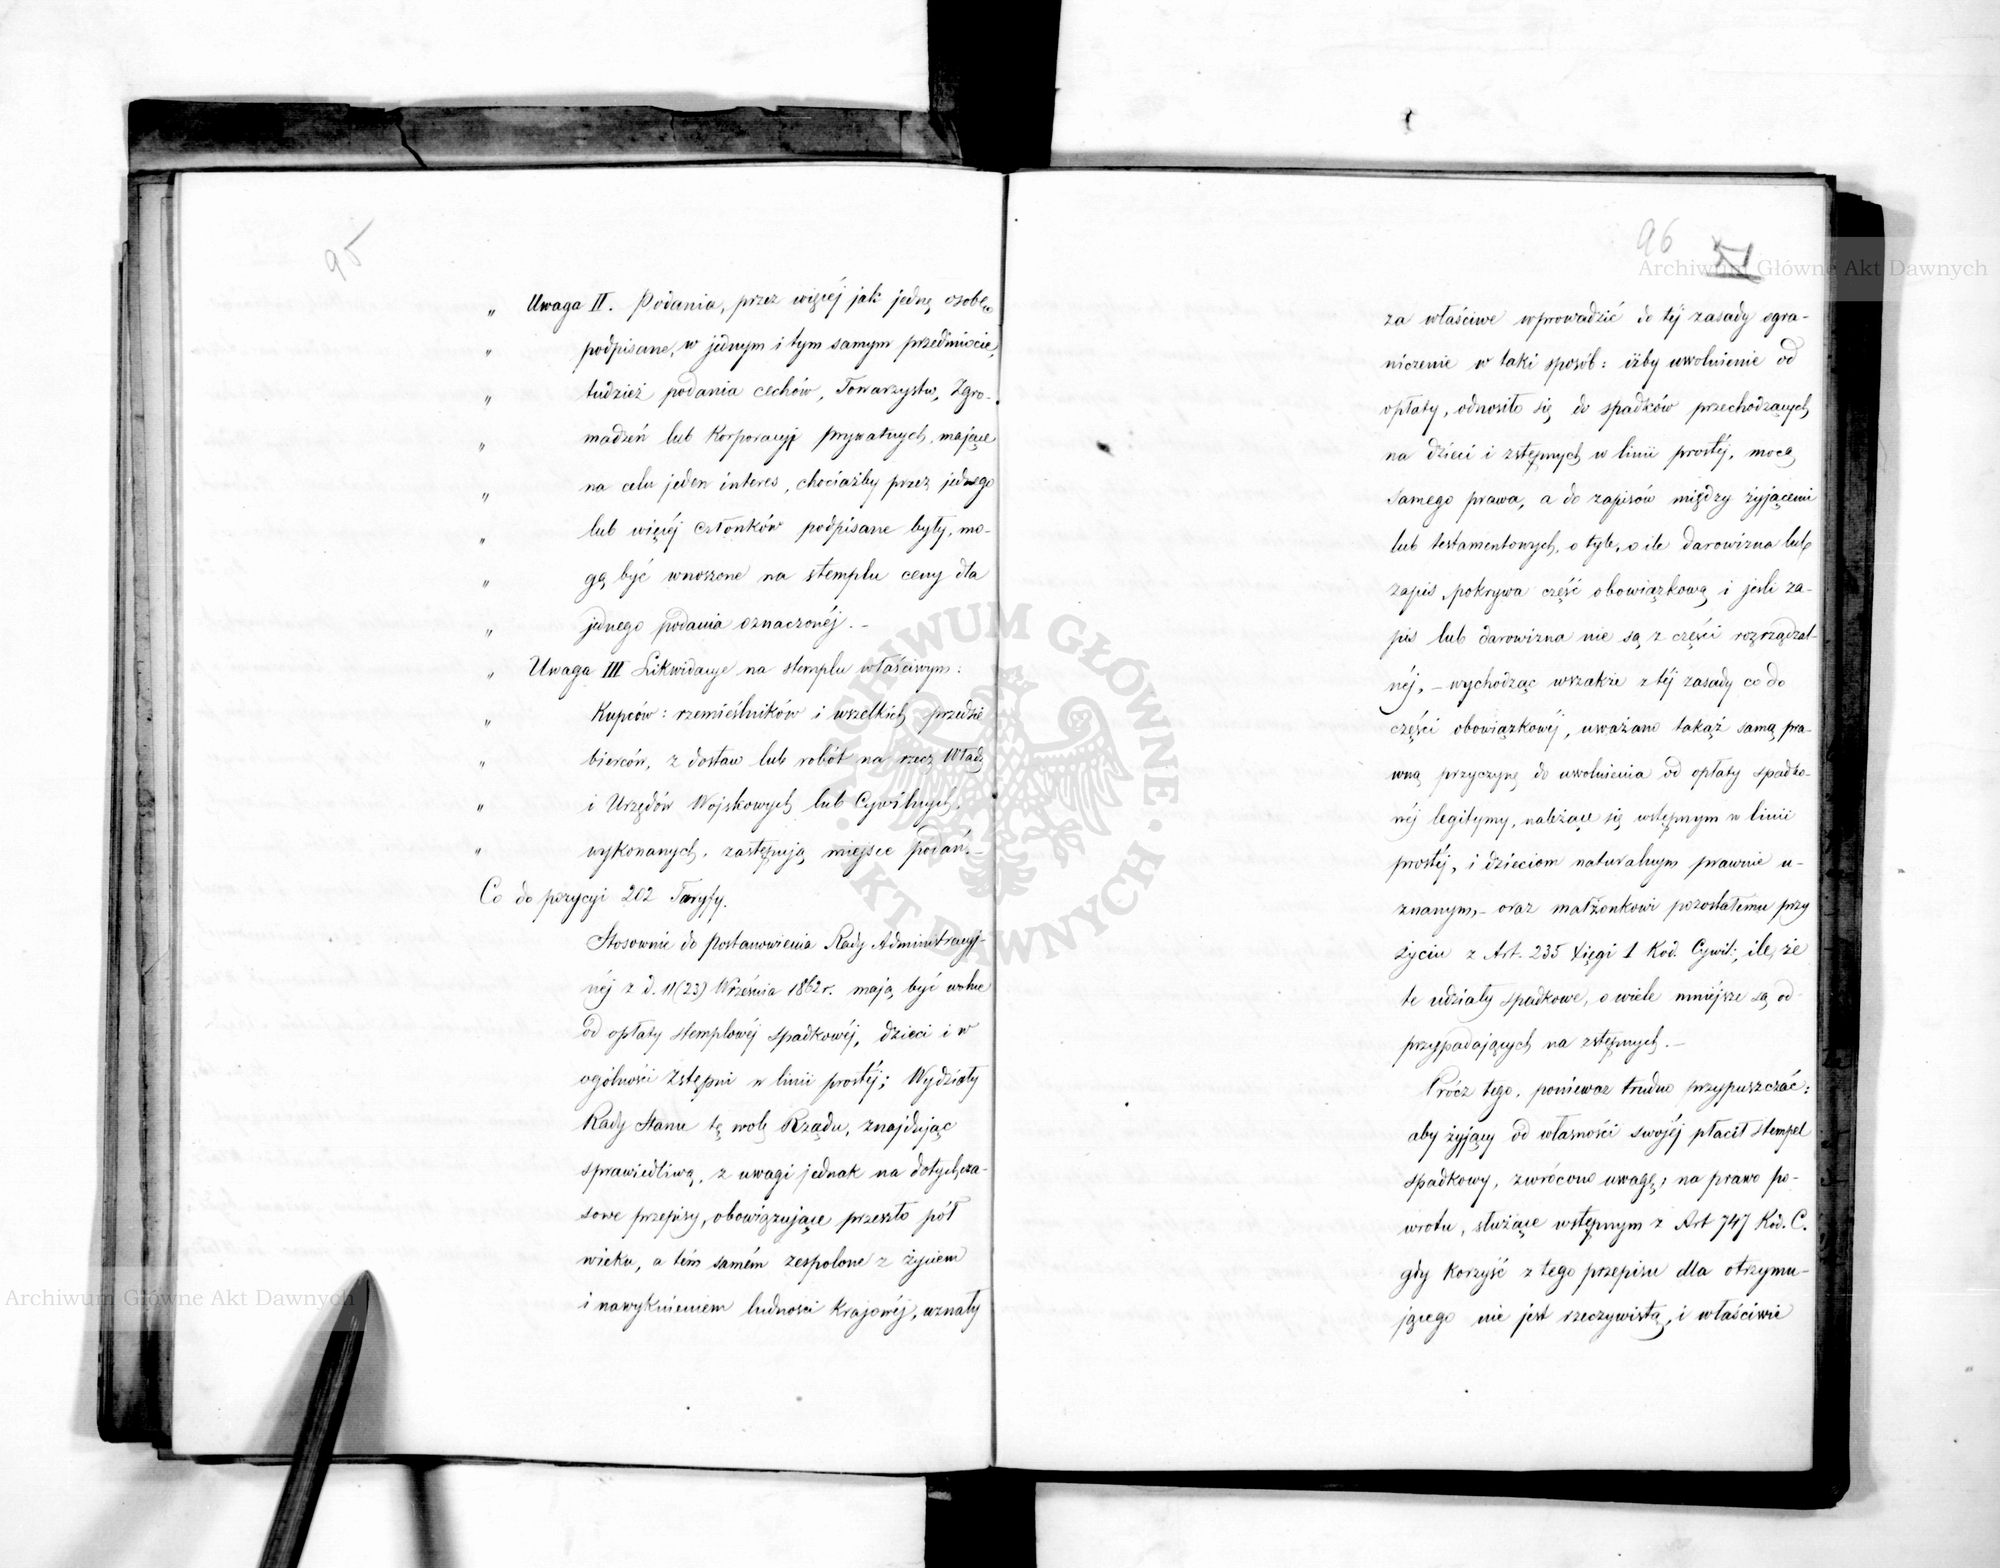 95
„ Uwaga II. Podania, przez więcéj jak jednę osobę
„ podpisane, w jednym i tym samym przedmiocie,
„ tudzież podania cechów, Towarzystw, Zgro-
„ madzeń lub Korporacyj prywatnych, mające
„ na celu jeden interes, chociażby przez jednego
„ lub więcéj członków podpisane były, mo-
„ gą być wnoszone na stemplu ceny dla
„ jednego podania oznaczonéj. –
„ Uwaga III Likwidacye na stemplu właściwym:
„ Kupców: rzemieślników i wszelkich przedsię
„ biorców, z dostaw lub robót na rzecz Władz
„ i Urzędów Wojskowych lub Cywilnych,
„ wykonanych, zastępują miejsce podań. –
Co do pozycyi 202 Taryfy.
Stosownie do Postanowienia Rady Administracyj-
néj z d. 11 (23) Września 1862 r. mają być wolne
od opłaty stemplowéj spadkowéj, dzieci i w
ogólności Zstępni w linii prostéj; Wydziały
Rady Stanu tę wolę Rządu, znajdując
sprawiedliwą, z uwagi jednak na dotychcza-
sowe przepisy, obowiązujące przeszło pół
wieku, a tém samém zespolone z życiem
i nawyknieniem ludności krajowéj, uznały
96
za właściwe wprowadzić do téj zasady ogra-
niczenie w taki sposób: iżby uwolnienie od
opłaty, odnosiło się do spadków przechodzących
na dzieci i zstępnych w linii prostéj, mocą
samego prawa, a do zapisów między żyjącemi
lub testamentowych, o tyle, o ile darowizna lub
zapis, pokrywa część obowiązkową i jeśli za-
pis lub darowizna nie są z części rozrządzal-
néj, – wychodząc wszakże z téj zasady co do
części obowiązkowéj, uważano takąż samą pra-
wną przyczynę do uwolnienia od opłaty spadko-
néj legitymy, należące się wstępnym w linii
prostéj, i dzieciom naturalnym prawnie u-
znanym, – oraz małżonkowi pozostałemu przy
życiu z Art. 235 Xięgi I Kod. Cywil:, ile, że
te udziały spadkowe, o wiele mniejsze są od
przypadających na zstępnych. –
Prócz tego, ponieważ trudno przypuszczać:
aby żyjący od własności swojéj płacił stempel
spadkowy, zwrócono uwagę, na prawo po-
wrotu, służące wstępnym z Art 747 Kod. C.
gdy korzyść z tego przepisu dla otrzymu-
jącego nie jest rzeczywistą, i właściwie
Archiwum Główne Akt Dawnych
Archiwum Główne Akt Dawnych
ARCHIWUM GŁÓWNE
AKT DAWNYCH